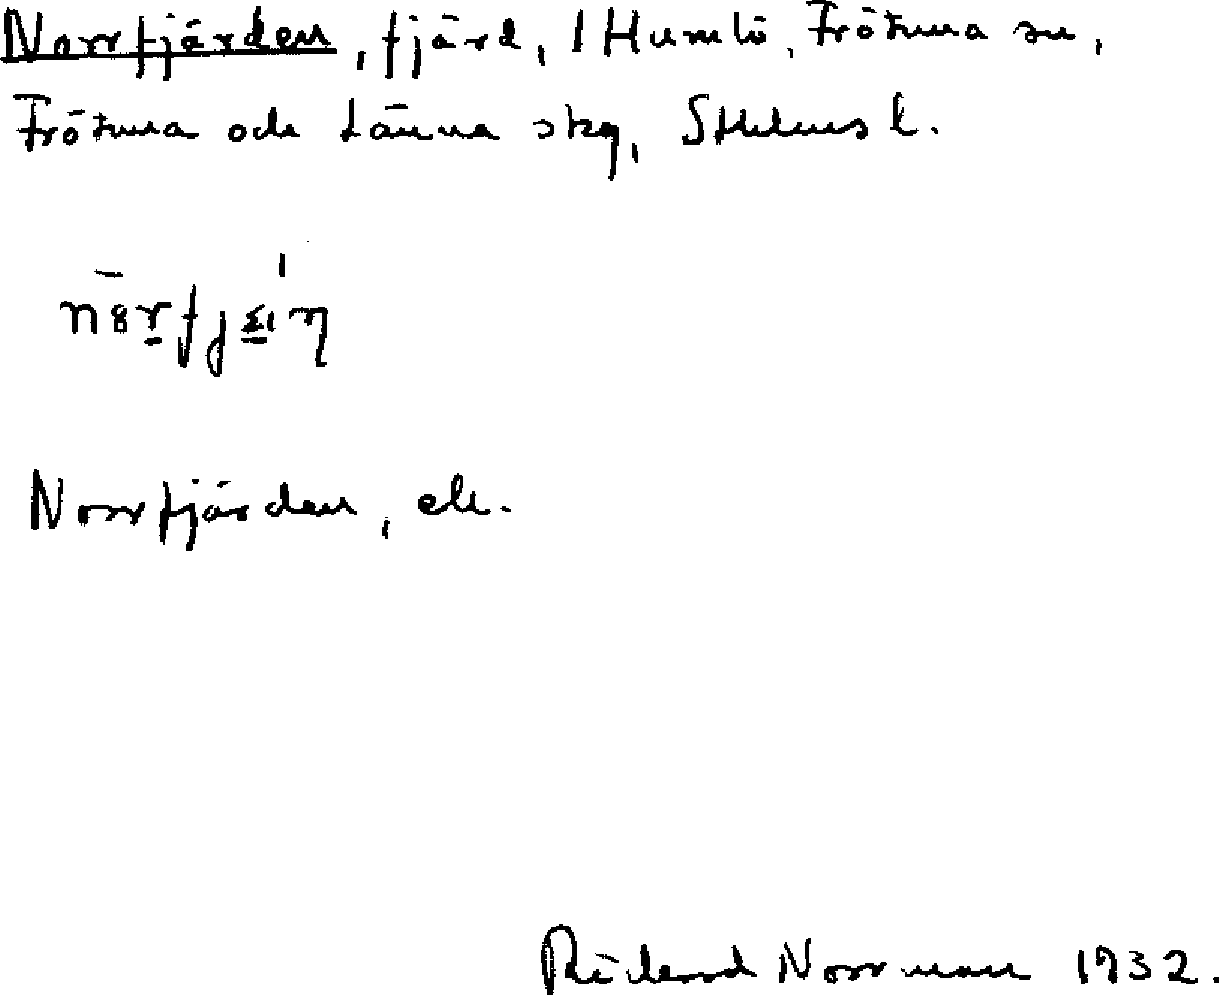 Norrfjärden, fjärd, 1 Humlö, Frötuna sn,
Frötuna och Länna skg, Sthlms l.
Norrfjärden, ek.
Rickard Norrman 1932.